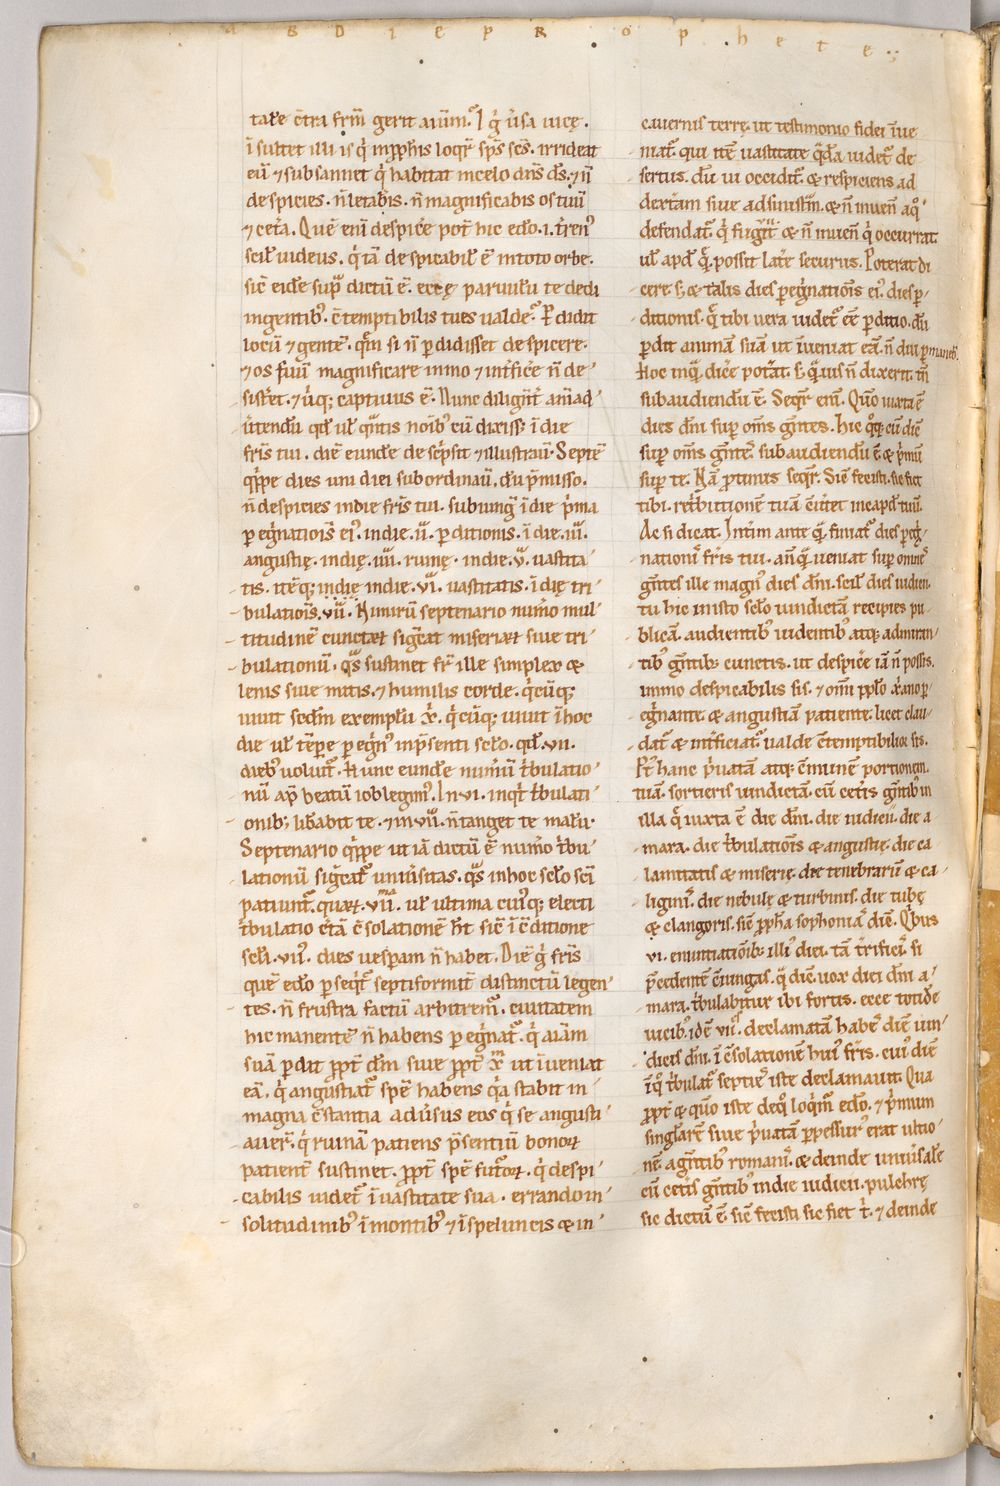 abdie prophete
tare c̄tra frm̄ gerit aium̄. Iḡ ūsa uicę.
ī sultet illi is q̇ ī pphis loqr̄ sp̄s sc̄s. irrideat
eū ⁊ subsannet q̇ habitat incelo dn̄s ds̄. ⁊ n̄
despicies. n̄ letab̄is. n̄ magnificabis os tuū
⁊ cet̄a. Quē eni despic̄e pot̄ hic edo.
scil̄ iudeus. q̇ iā despicabil̄ ē intoto orbe.
sic̄ eide sup̄ dictū ē. ecce paruulū te dedi
in gentib᷒. c̄temptibilis tu es ualde. P̄didit
locū ⁊ gentē. qm̄ si n̄ p̄didisset despicere.
⁊ os suū magnificare immo ⁊ int̄fic̄e n̄ de
sist̄et. ⁊ ūq; captiuus ē. Nunc dilign̄t̄ aīad
ūtendū qd̄ ul̄ qn̄tis noīb᷒ cū dixiss; ī die
fr̄is tui. diē eunde descp̄sit ⁊ illustrau̅. Septē
q̄ppe dies uni diei subordinau̅. dū p̄misso.
n̄ despicies indie fr̄is tui. subiung̅ ī die p̄ma
p̄egn̄atiōis ei᷒. indie .ii̅. p̄ditionis. ī die .iii̅.
angustię. indię .iiii̅. ruinę. indie .v̅. uastita
tis. itēq; indię indie .vi̅. uastitatis. ī dię tri
bulatiōis. vii̅. Nimirū septenario num̅o mul
titudinē cunctaꝝ sign̄cat miseriaꝝ siue tri
bulationū. q̄s sustinet fr̄ ille simplex &
lenis siue mitis. ⁊ humilis corde. q̇cūq;
uiuit scdm̄ exemplū xp̄i. q̇cūq; uiuit ī hoc
die ul̄ tēpe p̄egn᷒ inp̄senti sc̄lo. qd̄ .vii.
dieb᷒ uoluit̄. Hunc eunde num̅ū t̄bulatio
nū ap̄ beatū iob legim᷒. In .vi. inqt̄ t̄bulati
onib; lib̄abit te. ⁊ in .vii̅. n̄ tanget te malū.
Septenario q̄ppe ut iā dictū ē num̅o t̄bu
lationū sign̄cat̄ uniūsitas. q̄s inhoc sc̄lo sc̄i
patiunt̄. quaꝝ .vii̅.ma ul̄ ultima cui᷒q; electi
t̄bulatio et̄nā c̄solationē ht̄ sic̄ ī c̄ditione
sc̄li. vii᷒. dies uesp̄am n̄ habet. Diē ḡ fr̄is
quē edo p̄seqt̄ septiformit̄ distinctū legen
tes. n̄ frustra factū arbitrem̅. ciuitatem
hic manentē n̄ habens p̄egn̄at̄. q̇ aiam̄
suā p̄dit pp̄t̄ dm̄ siue pp̄t̄ xp̄m ut īueniat
eā. q̇ angustiat̄ spē habens qa̅ stabit in
magna c̄stantia adūsus eos q̇ se angusti
auer̄. q̇ ruinā patiens p̄sentiū bonoꝝ
patient̄ sustinet. pp̄t̄ spē futuroꝝ. q̇ despi
cabilis uidet̄ ī uastitate sua. errando in
solitudinib᷒ ī montib᷒ ⁊ ī speluncis & in
cauernis terrę. ut testimonio fidei īue
niat̄. qui itē uastitate q̄da uidet̄ de
sertus. dū ui occidit̄. & respiciens ad
dextam̄ siue adsinistm̄. & n̄ inuen̄ a q᷒
defendat̄. q̇ fugit & n̄ inuen̄ q̇ occurrat
ul̄ apd̄ q̄. possit late securus. Poterat di
cere s; & talis dies p̄egn̄atiōis ei᷒. dies p̄
ditionis. q̄ tibi uera uidet̄ eē p̄ditio. dū
p̄dit animā suā ut īueniat eā. n̄ diu p̄maneb̄.
Hoc inq̄ dic̄e pot̄at. s; q̄uis n̄ dixerit. tn̄
subaudiendū ē. Seqr̄ eni̅. Quo̅ iuxta ē
dies dn̄i sup̄ om̄s gn̄tes. hic q᷒q; cū die
sup̄ om̄s gn̄tes̄. subaudiendū ē & p̄mū
sup̄ te. Nā p̄tinus seqr̄. Sic̄ fecisti. sic fiet
tibi. retbitionē tuā c̄ūtet in capd tuū.
Ac si dicat. Int̄im ante q̄ finiat̄ dies p̄egn̄
nationis̄ fr̄is tui. an̄ q̄ ueniat sup̄ omnes̄
gn̄tes ille magn᷒ dies dn̄i. scil̄ dies iudicii.
tu hic in isto sc̄lo uindictā recipies pu
blicā. audientib᷒ uidentib᷒ atq; admiran
tib᷒ gn̄tib; cunctis. ut despic̄e iā n̄ possis.
immo despicabilis sis. ⁊ om̄i pp̄lo xp̄iano p̄
egn̄ante. & angustiā patiente. licet clau
dat̄ & int̄ficiat̄. ualde c̄temptibilior sis.
Pt̄ hanc p̄uatā atq; c̄munē portionem.
tuā. sortieris uindictā. cū cet̄is gn̄tib᷒ in
illa q̄ iuxta ē die dn̄i. die iudicii. die a
mara. die t̄bulatiōis & angustię. die ca
lamitatis & miserię. die tenebrarū & ca
ligini᷒. die nebulę & turbinis. die tubę
& clangoris. sic̄ pp̄ha sophonias̄ diē. Q̇bus
vi. enuntiatiōib; illi᷒ diei. tā t̄rifici᷒. si
p̄cedentē c̄iungas. q̄ diē. uox diei dn̄i a
mara. t̄bulabitur ibi fortis. ecce totide
uicib᷒ ide̅ vii᷒. declamatā habes̄ diē uin
dicis dn̄i. ī c̄solationē hui᷒ fr̄is. cui᷒ diē
ī q᷒ t̄bulat̄ septies̄ iste declamauit. Qua
pp̄t̄ & quo̅ iste de q᷒ loqm̄ edo. ⁊ p̄mum
singlare̅ siue p̄uatā p̄pessur᷒ erat ultio
nē. a gn̄tib᷒ romanis̄. & deinde uniūsale̅
cū cet̄is gn̄tib᷒ in die iudicii. pulchrę
sic dictū ē. sic̄ fecisti sic fiet t̄. ⁊ deinde